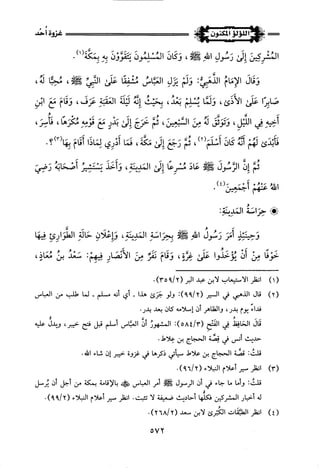 اللؤلؤ المكنون
غزوة أحد
المُشْرِكِينَ إِلَى رَسُولِ اللهِ ﷺ، وَكَانَ المُسْلِمُونَ يَتَقَوَّوْنَ بِهِ بِمَكَّةَ(١).
وَقَالَ الإِمَامُ الذَّهَبِيُّ: وَلَمْ يَزَلِ العَبَّاسُ مُشْفِقًا عَلَى النَّبِيِّ ﷺ، مُحِبًّا لَهُ،
صَابِرًا عَلَى الأَذَى، وَلَمَّا يُسْلِمْ بَعْدُ، بِحَيْثُ إِنَّهُ لَيْلَةَ العَقَبَةِ عَرَفَ، وَقَامَ مَعَ ابْنِ
أَخِيهِ فِي اللَّيْلِ، وَتَوَثَّقَ لَهُ مِنَ السَّبْعِينَ، ثُمَّ خَرَجَ إِلَى بَدْرٍ مَعَ قَوْمِهِ مُكْرَهًا، فَأُسِرَ،
فَأَبْدَى لَهُمْ أَنَّهُ كَانَ أَسْلَمَ(٢)، ثُمَّ رَجَعَ إِلَى مَكَّةَ، فَمَا أَدْرِي لِمَاذَا أَقَامَ بِهَا(٣)؟.
ثُمَّ إِنَّ الرَّسُولَ ﷺ عَادَ مُسْرِعًا إِلَى المَدِينَةِ، وَأَخَذَ يَسْتَشِيرُ أَصْحَابَهُ رَضِيَ
اللهُ عَنْهُمْ أَجْمَعِينَ(٤).
◉ حِرَاسَةُ المَدِينَةِ:
وَحِينَئِذٍ أَمَرَ رَسُولُ اللهِ ﷺ بِحِرَاسَةِ المَدِينَةِ، وَإِعْلَانِ حَالَةِ الطَّوَارِئِ فِيهَا
خَوْفًا مِنْ أَنْ يُؤْخَذُوا عَلَى غِرَّةٍ، وَقَامَ نَفَرٌ مِنَ الأَنْصَارِ فِيهِمْ: سَعْدُ بنُ مُعَاذٍ،
(١) انظر الاستيعاب لابن عبد البر (٣٥٩/٢).
(٢) قال الذهبي في السير (٩٩/٢): ولو جرى هذا ـ أي أنه مسلم ـ لما طلب من العباس
فداءً يوم بدر، والظاهر أن إسلامه كان بعد بدر.
قَالَ الحَافِظُ فِي الفَتْحِ (٥٨٤/٣): المشهورُ أنَّ العبَّاس أسلم قبل فتح خيبر، ويدلُّ عليه
حديث أنس في قصَّة الحجاج بن علاط.
قلتُ: قصَّة الحجاج بن علاط سيأتي ذكرها في غزوة خيبر إن شاء الله.
(٣) انظر سير أعلام النبلاء (٩٦/٢).
قلتُ: وأما ما جاء في أن الرسول ﷺ أمر العباس بالإقامة بمكة من أجل أن يُرسل
له أخبار المشركين فكلُّها أحاديث ضعيفة لا تثبت. انظر سير أعلام النبلاء (٩٩/٢).
(٤) انظر الطَّبَقَات الكُبْرَى لابن سعد (٢٦٨/٢).
٥٧٢